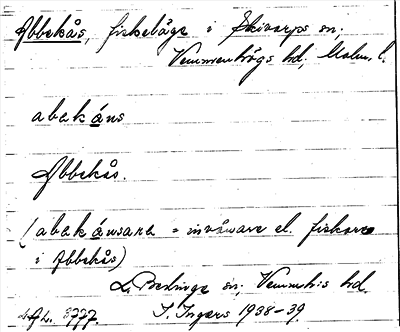 Abbekås, fiskeläge i Skivarps sn,
Vemmenhögs hd, Malm. l.
abekáns
Abbekås.
(abekánsara = invånare el. fiskare
i Abbekås)
L. Beddinge sn, Vemmh:s hd.
I. Ingers 1938-39.
3777.